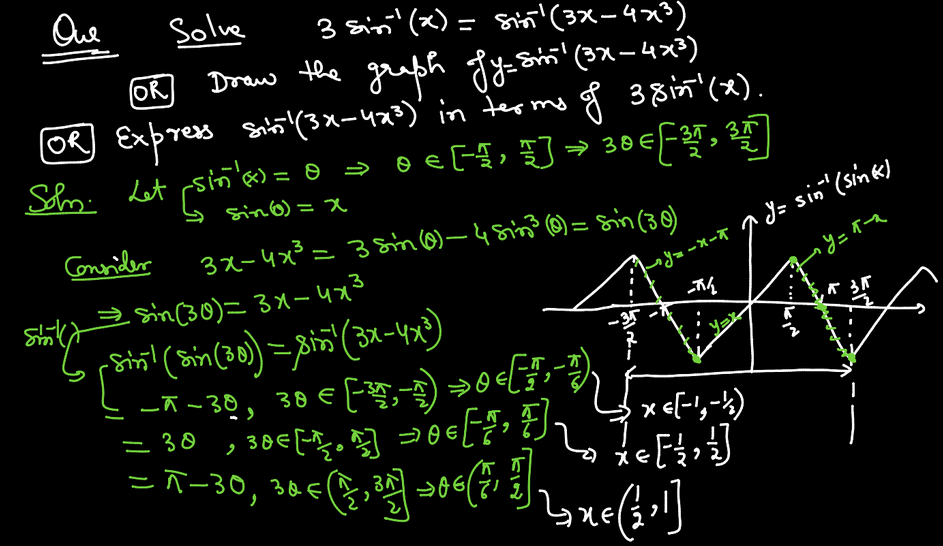 Que Solve 3 sin⁻¹(x) = sin⁻¹(3x – 4x³)
OR Draw the graph of y = sin⁻¹(3x – 4x³)
OR Express sin⁻¹(3x – 4x³) in terms of 3 sin⁻¹(x).
Soln. Let sin⁻¹(x) = θ ⇒ θ ∈ [-π/2, π/2] ⇒ 3θ ∈ [-3π/2, 3π/2]
↳ sin(θ) = x
Consider 3x – 4x³ = 3 sin(θ) – 4 sin³(θ) = sin(3θ)
⇒ sin(3θ) = 3x – 4x³
sin⁻¹( )
sin⁻¹(sin(3θ)) = sin⁻¹(3x – 4x³)
= -π – 3θ, 3θ ∈ [-3π/2, -π/2) ⇒ θ ∈ [-π/2, -π/6) → x ∈ [-1, -1/2)
= 3θ, 3θ ∈ [-π/2, π/2] ⇒ θ ∈ [-π/6, π/6] → x ∈ [-1/2, 1/2]
= π – 3θ, 3θ ∈ (π/2, 3π/2] ⇒ θ ∈ (π/6, π/2] → x ∈ (1/2, 1]
y = sin⁻¹(sin x)
y = -x – π
y = π – x
-3π/2 -π -π/2 y = x π/2 π 3π/2